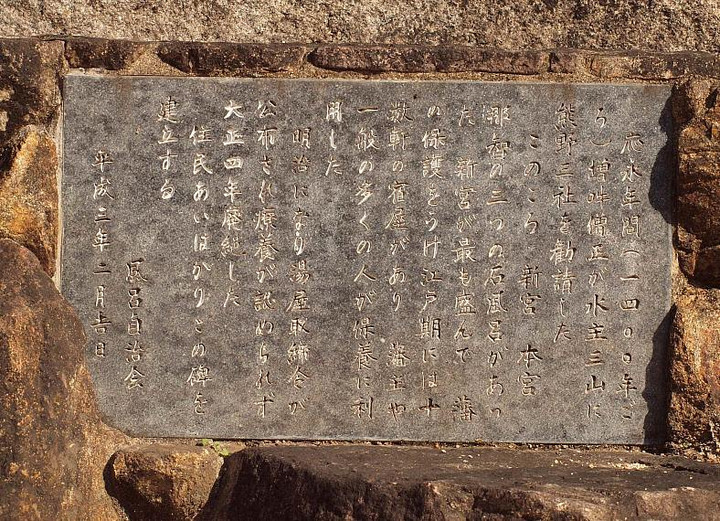 応永年間(一四〇〇年ご
ろ)増吽僧正が水主三山に
熊野三社を勧請した
このころ 新宮 本宮
那智の三つの石風呂があっ
た 新宮が最も盛んで 藩
の保護をうけ江戸期には十
数軒の宿屋があり 藩主や
一般の多くの人が保養に利
用した
明治になり湯屋取締令が
公布され療養が認められず
大正四年廃絶した
住民あいはかりこの碑を
建立する
平成三年二月吉日
風呂自治会